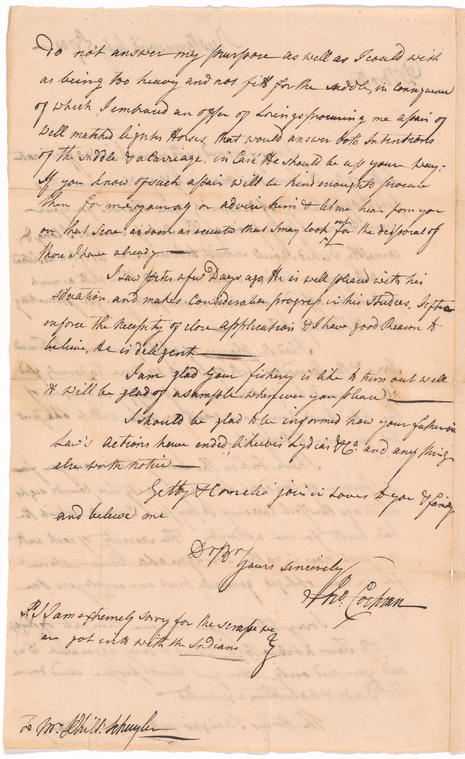 do not answer my purpose as well as I could wish
as being too heavy and not fitt for the saddle, in consequence
of which I imbraced an offer of Livings procuring me a pair of
well matched light Horses, that would answer both Intentions
of the saddle & a Carriage. in Case He should be up your way;
If you know of such a pair will be kind enough to procure
them for me yourself or advise him & let me hear from you
on that score as soon as executed that I may look out for the disposal of
those I have already —
I saw Peter a few Days ago, He is well pleased with his
situation and makes considerable progress in his studies, I often
inforce the necessity of close application & I have good Reason to
believe, He is dilligent —
I am glad your fishery is like to turn out well
& will be glad of a sample whenever you please —
I should be glad to be informed how your father in
Law's Actions have ended, likewis Lydias & Co. and any thing
else worth notice —
Getty & Cornelia join in Love to you & family
and beleive me
Dr Br
Yours Sincerely
Jno. Cochran
PS I am extremely sorry for the scrape we
are got into with the Indians
To Mr. Phill. Schuyler